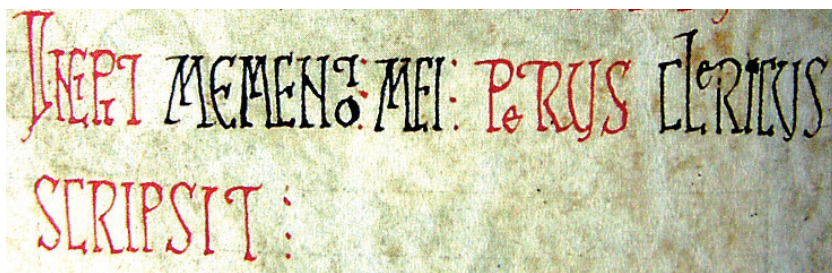 INEPTI MEMENTO: MEI: PeTRUS CleRICUS
SCRIPSIT: